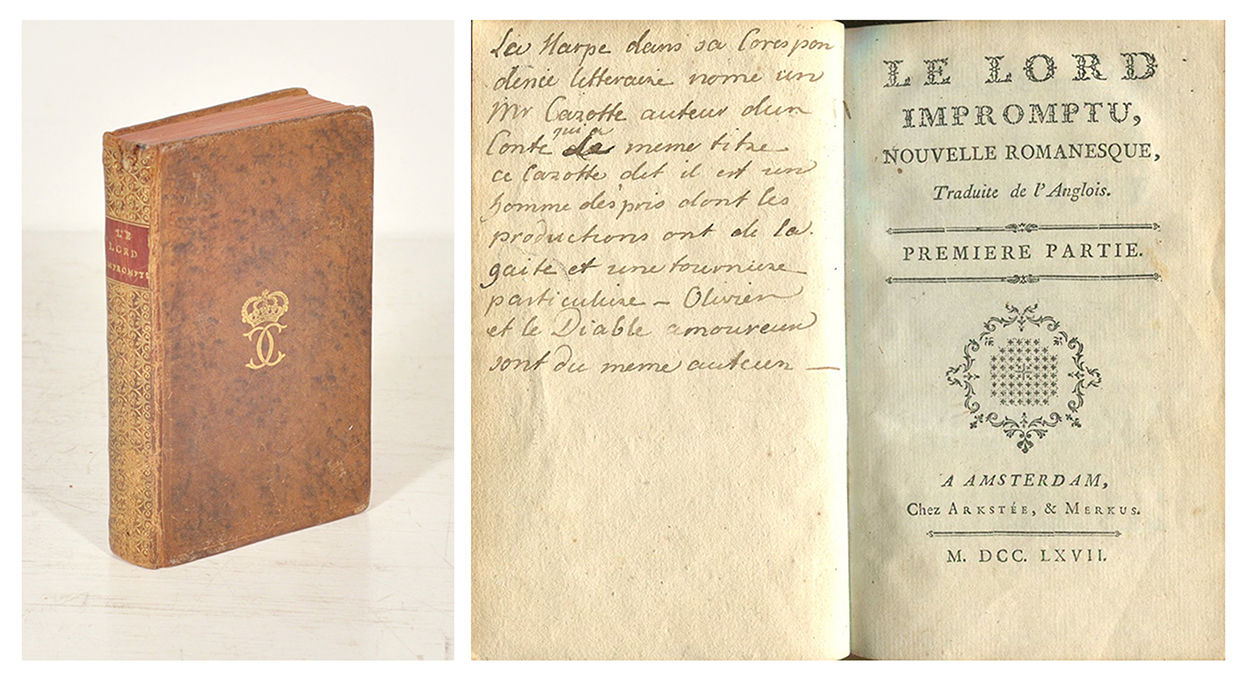 LE
LORD
IMPROMPTU
La Harpe dans sa Corespon
dence litteraire nome un
Mr Cazotte auteur d'un
Conte qui a le meme titre
ce Cazotte dit il est un
homme d'espris dont les
productions ont de la
gaite et une tourniere
particuliere — Olivier
et le Diable amoureux
sont du meme auteur —
LE LORD
IMPROMPTU,
NOUVELLE ROMANESQUE,
Traduite de l'Anglois.
PREMIERE PARTIE.
A AMSTERDAM,
Chez ARKSTÉE, & MERKUS.
M. DCC. LXVII.